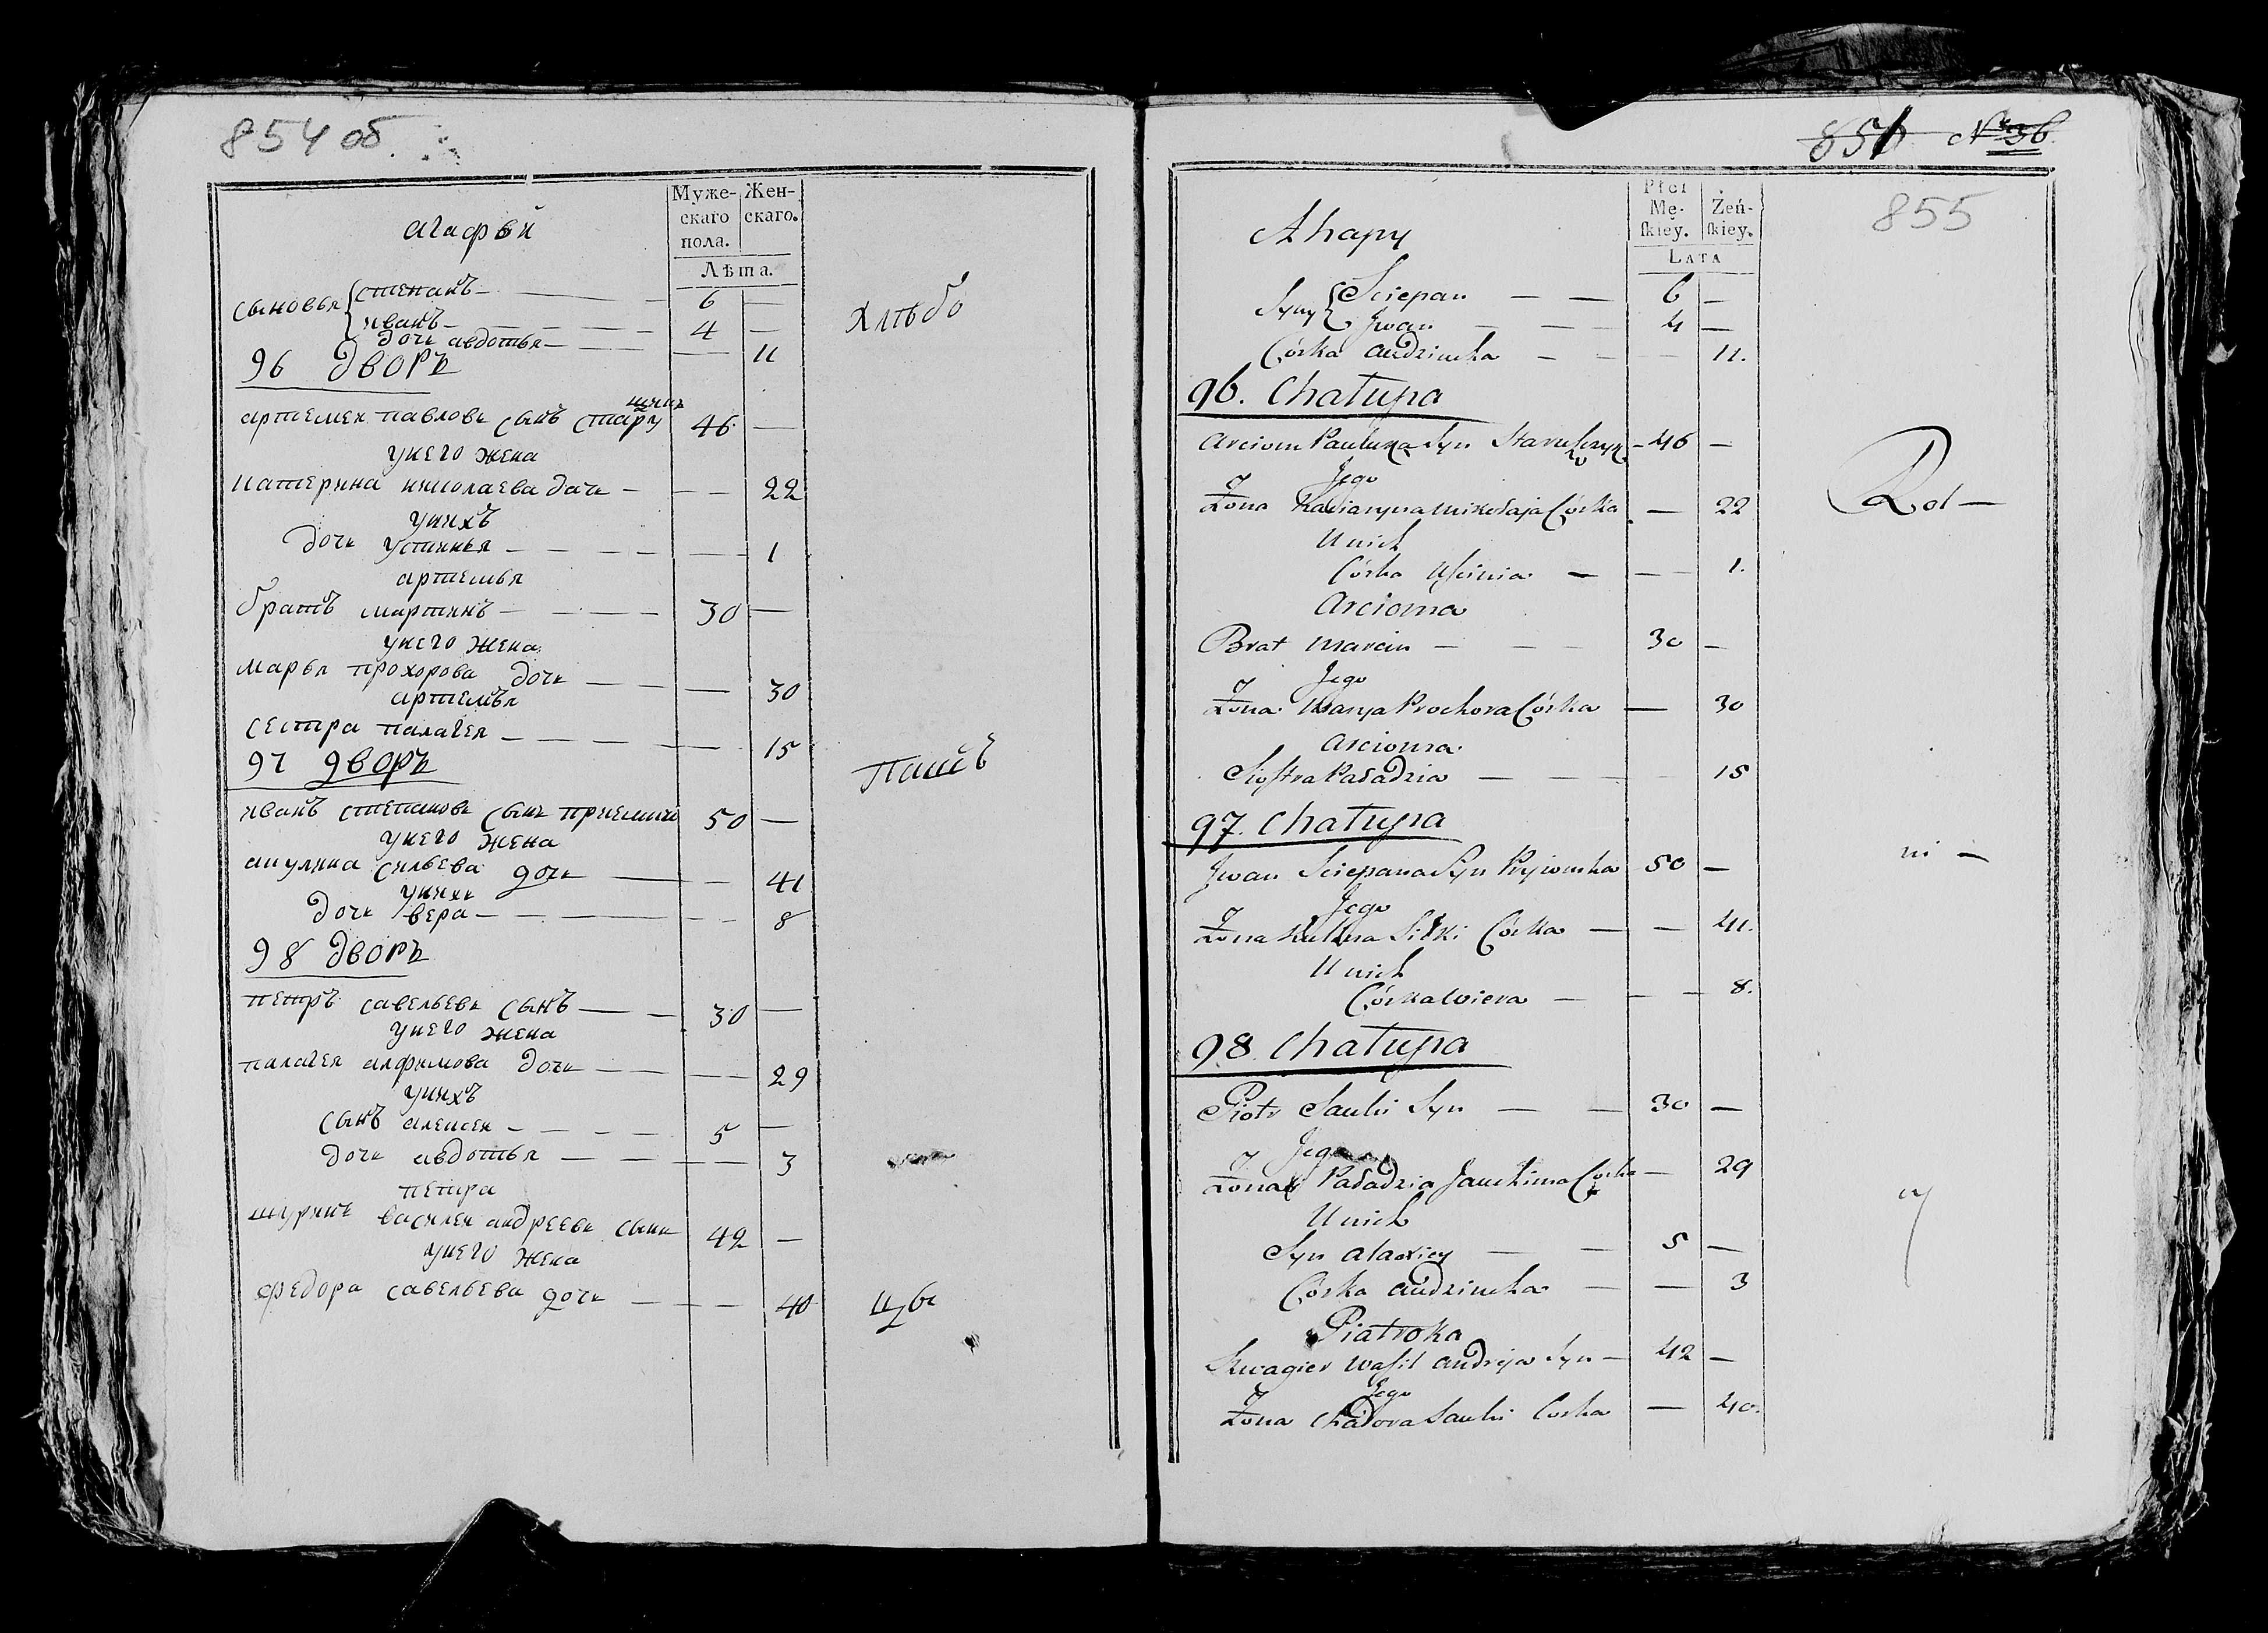 854 об.
Муже-
скаго
пола.
Жен-
скаго.
Лѣта.
агафьи
сыновья
степанъ — 6 —
иванъ — 4 —
дочь авдотья — — 11
хлѣбо
96 дворъ
артемеи павловъ сынъ стару
щикъ 46 —
у него жена
катерина николаева дочь — — 22
у нихъ
дочь устинья — — 1
артемья
братъ мартинъ — 30 —
у него жена
марья прохорова дочь — — 30
артемья
сестра палагея — — 15
97 дворъ
пашъ
иванъ степановъ сынъ приемыш 50 —
у него жена
акулина сильева дочь — — 41
у нихъ
дочь вера — — 8
98 дворъ
петръ савельевъ сынъ — 30 —
у него жена
палагея алфимова дочь — — 29
у нихъ
сынъ алексеи — 5 —
дочь авдотья — — 3
петра
шуринъ василеи андреевъ сынъ 42 —
у него жена
федора савельева дочь — — 40
цы
851 № 36.
855
Płci
Mę-
ſkiey.
Żeń-
ſkiey.
Lata
Ahapy
Syny
Sciepan — — 6 —
Jwan — — 4 —
Córka Audziucha — — 11.
96. Chałupa
Arciom Pauluka Syn Staruſzczyk — 46 —
Jego
Żona Kaciaryna Mikołaja Córka — 22
Rol —
U nich
Córka Uſcinia — — 1.
Arcioma
Brat Marcin — — 30 —
Jego
Żona Marya Prochora Córka — 30
Arcioma
Sioſtra Paładzia — — 15
97. Chałupa
Jwan Sciepana Syn Pryiomka 50 —
ni —
Jego
Żona Kulina Siłki Córka — — 41.
U nich
Córka Wiera — — 8.
98. Chałupa
Piotr Saulii Syn — — 30 —
Jego
Żona Paładzia Jauchima Córka — 29
U nich
cy
Syn Alaxiey — — 5 —
Córka Audziucha — — 3
Piatroka
Szwagier Waſil Andreja Syn — 42 —
Jego
Żona Chadora Saulii Corka — 40.